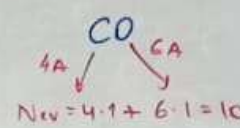 CO
4A 6A
Nev = 4·1 + 6·1 = 10